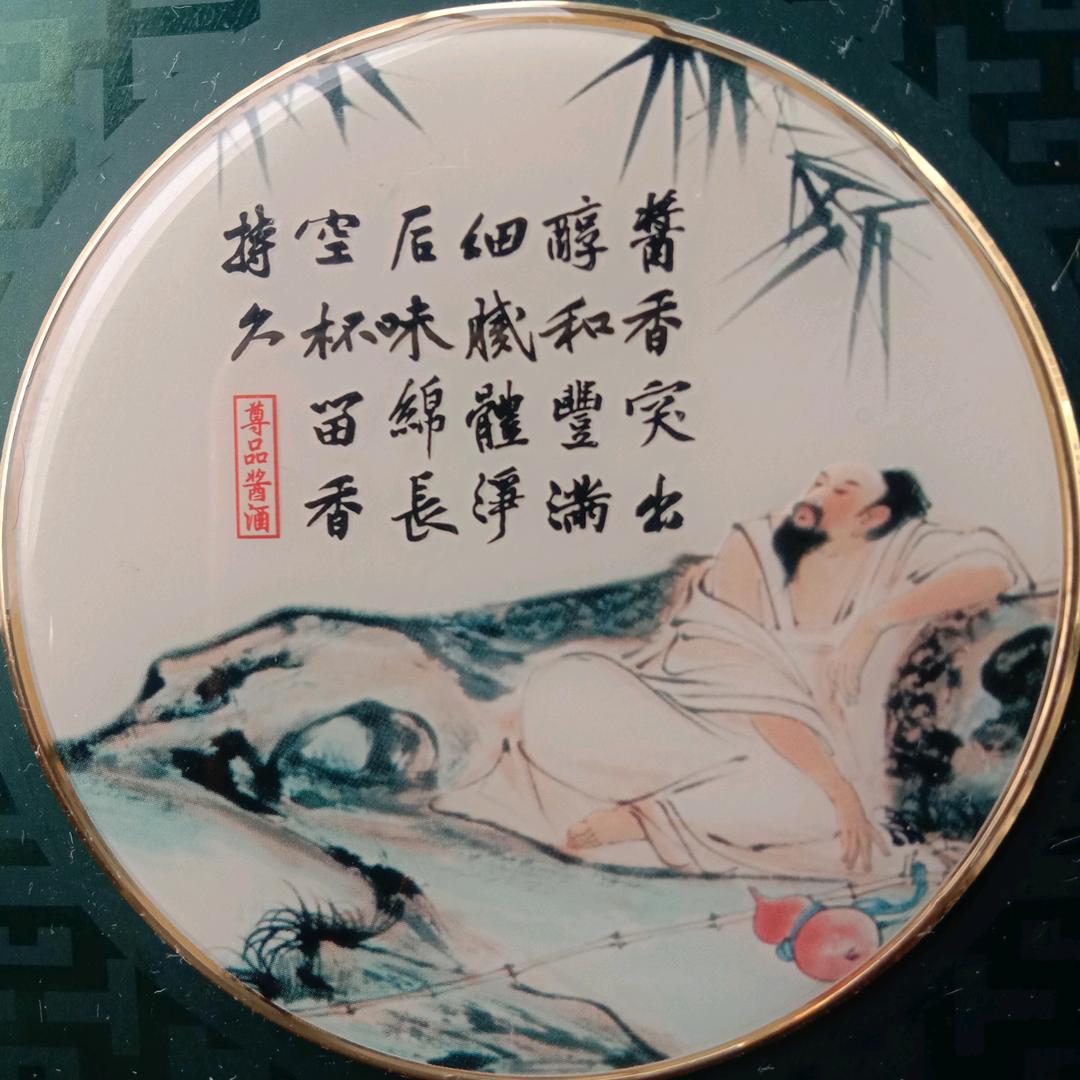 醬香突出
醇和豐滿
細膩體淨
后味綿長
空杯留香
持久
尊品酱酒